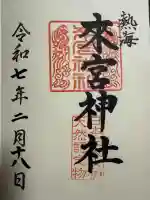 熱海
來宮神社
令和七年二月十八日